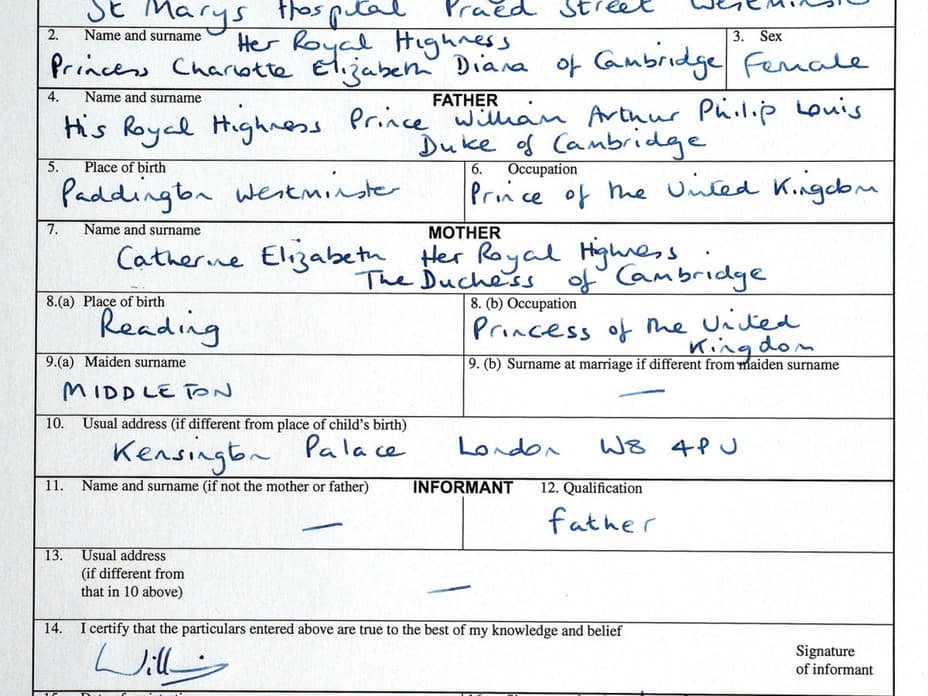 St Marys Hospital Praed Street Westminster
2. Name and surname Her Royal Highness 3. Sex
Princess Charlotte Elizabeth Diana of Cambridge Female
4. Name and surname FATHER
His Royal Highness Prince William Arthur Philip Louis
Duke of Cambridge
5. Place of birth 6. Occupation
Paddington Westminster Prince of the United Kingdom
7. Name and surname MOTHER
Catherine Elizabeth Her Royal Highness
The Duchess of Cambridge
8.(a) Place of birth 8. (b) Occupation
Reading Princess of the United
Kingdom
9.(a) Maiden surname 9. (b) Surname at marriage if different from maiden surname
MIDDLETON —
10. Usual address (if different from place of child's birth)
Kensington Palace London W8 4PU
11. Name and surname (if not the mother or father) INFORMANT 12. Qualification
— father
13. Usual address
(if different from
that in 10 above) —
14. I certify that the particulars entered above are true to the best of my knowledge and belief
William Signature
of informant